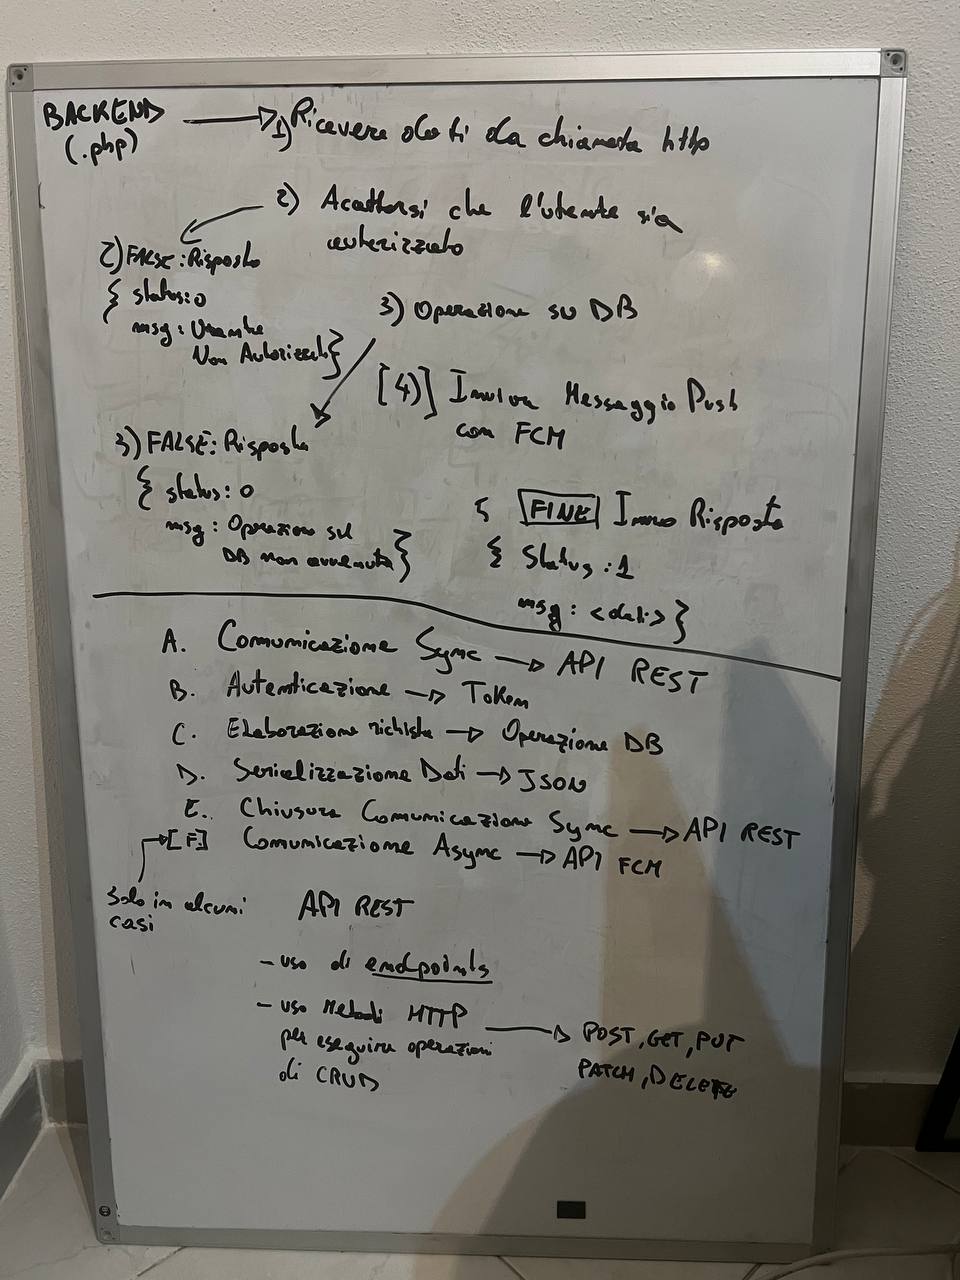 BACKEND
(.php)
1) Ricevere dati da chiamata http
2) Accettarsi che l'utente sia
autorizzato
2) FALSE: Risposta
{ status: 0
msg: Utente
Non Autorizzato }
3) Operazione su DB
[4)] Inviva Messaggio Push
con FCM
3) FALSE: Risposta
{ status: 0
msg: Operazione sul
DB non avvenuta }
5 FINE Invio Risposta
{ Status: 1
msg: <dati> }
A. Comunicazione Sync → API REST
B. Autenticazione → Token
C. Elaborazione richista → Operazione DB
D. Serializzazione Dati → JSON
E. Chiusura Comunicazione Sync → API REST
[F] Comunicazione Async → API FCM
Solo in alcuni
casi
API REST
- uso di endpoints
- uso Metodi HTTP → POST, GET, PUT
per eseguire operazioni PATCH, DELETE
di CRUD